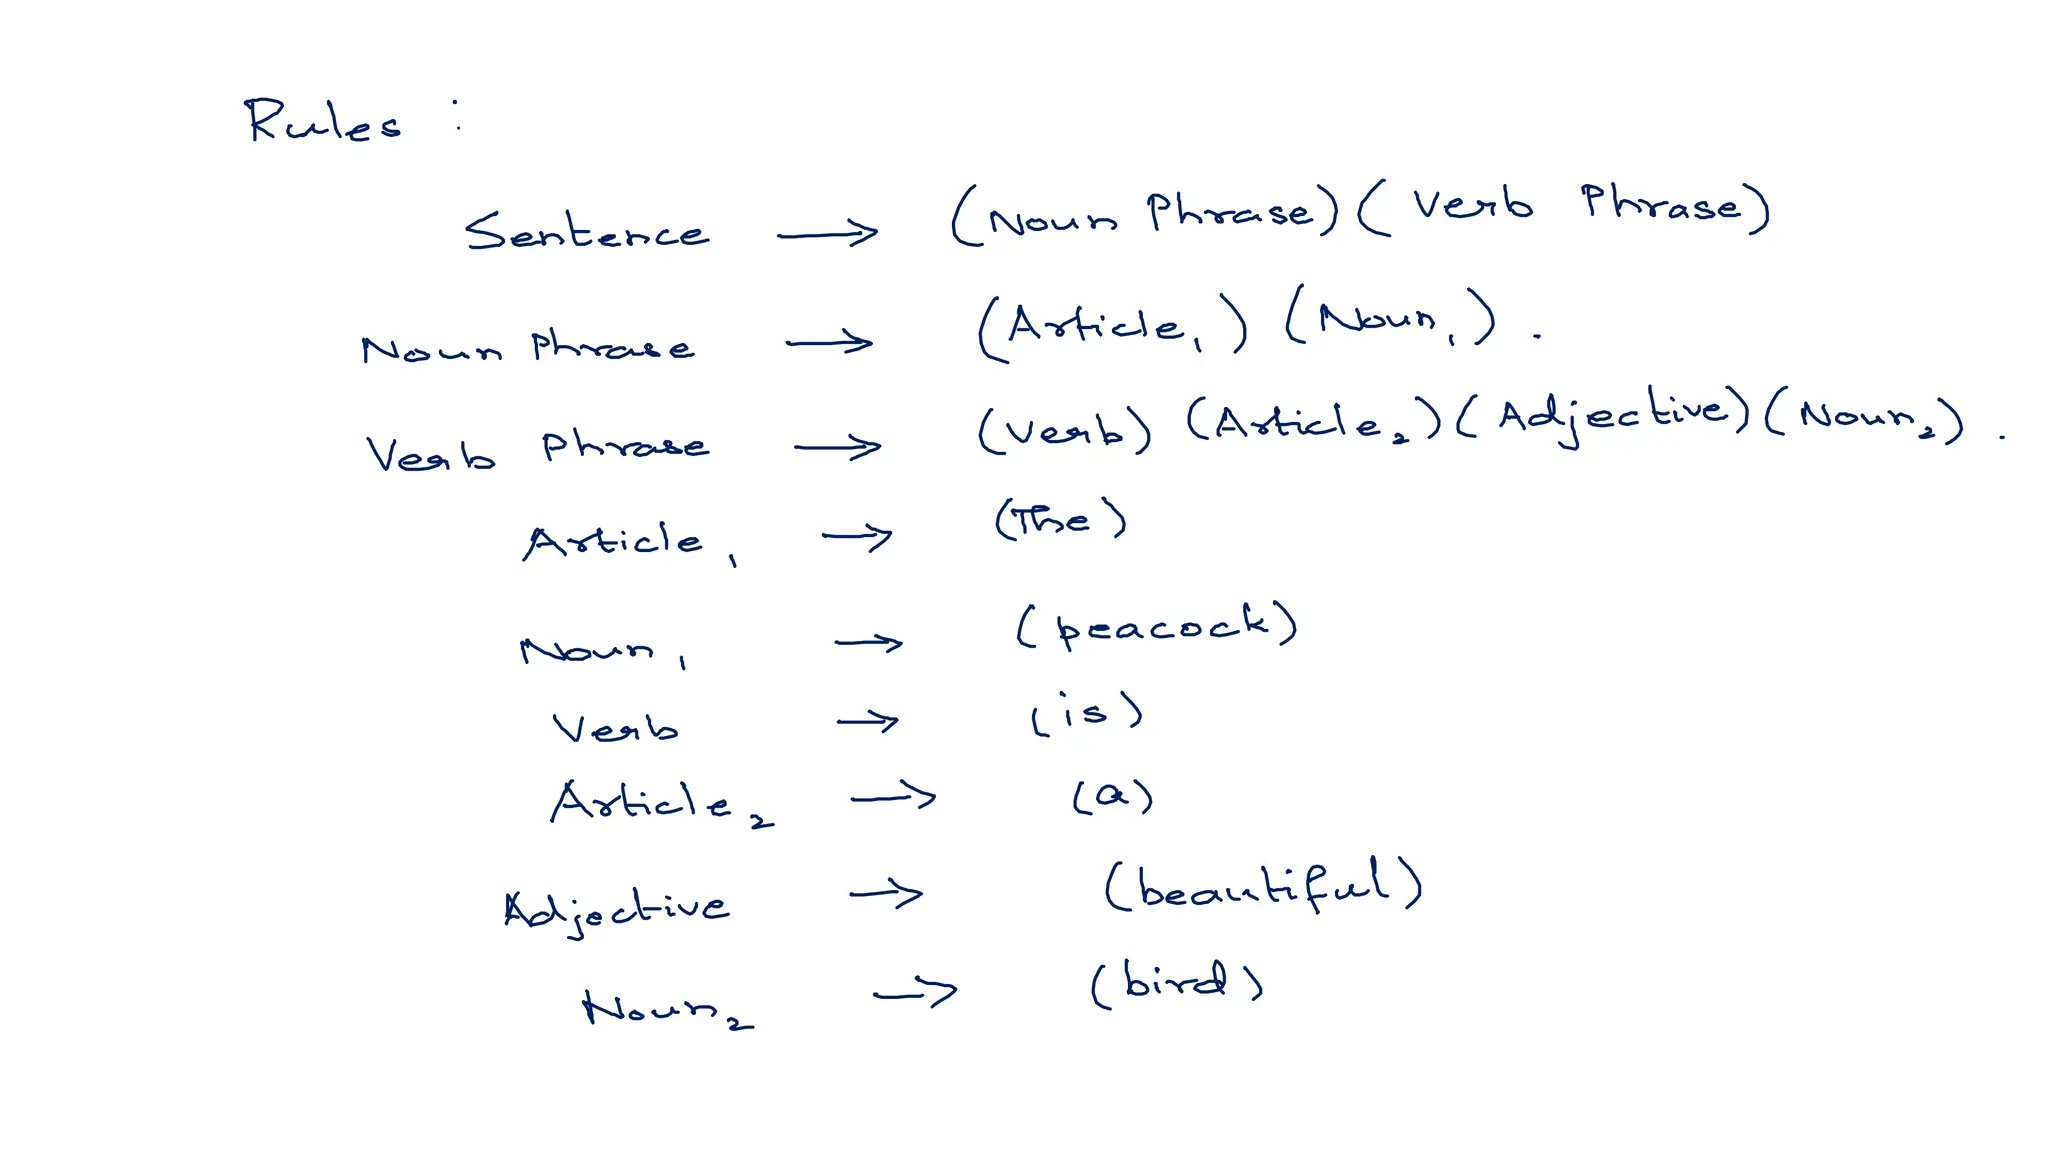 Rules :
Sentence → (Noun Phrase) (Verb Phrase)
Noun Phrase → (Article₁) (Noun₁).
Verb Phrase → (Verb) (Article₂) (Adjective) (Noun₂).
Article₁ → (The)
Noun₁ → (peacock)
Verb → (is)
Article₂ → (a)
Adjective → (beautiful)
Noun₂ → (bird)